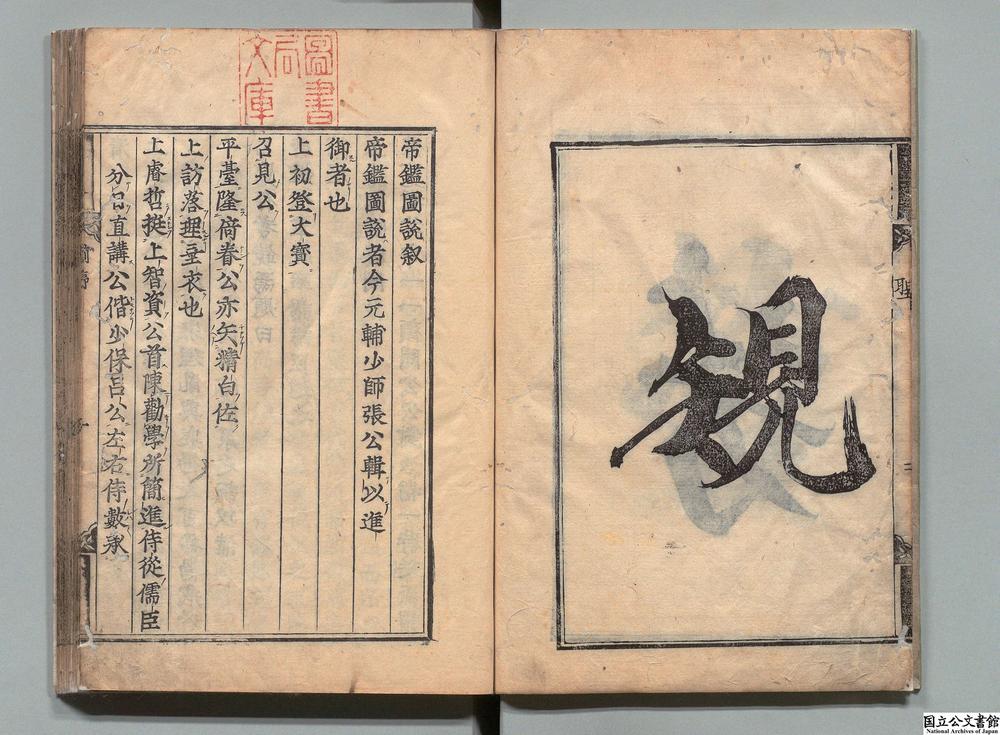 規
帝鑑圖說叙
帝鑑圖說者今元輔少師張公輯以進
御者也
上初登大寶
召見公
平臺隆龄眷公亦矢精白佐
上訪落理垂衣也
上睿哲挺上智資公首陳勸學所簡進侍從儒臣
分日直講公偕少保呂公左右侍數承
圖書
局
文庫
国立公文書館
National Archives of Japan